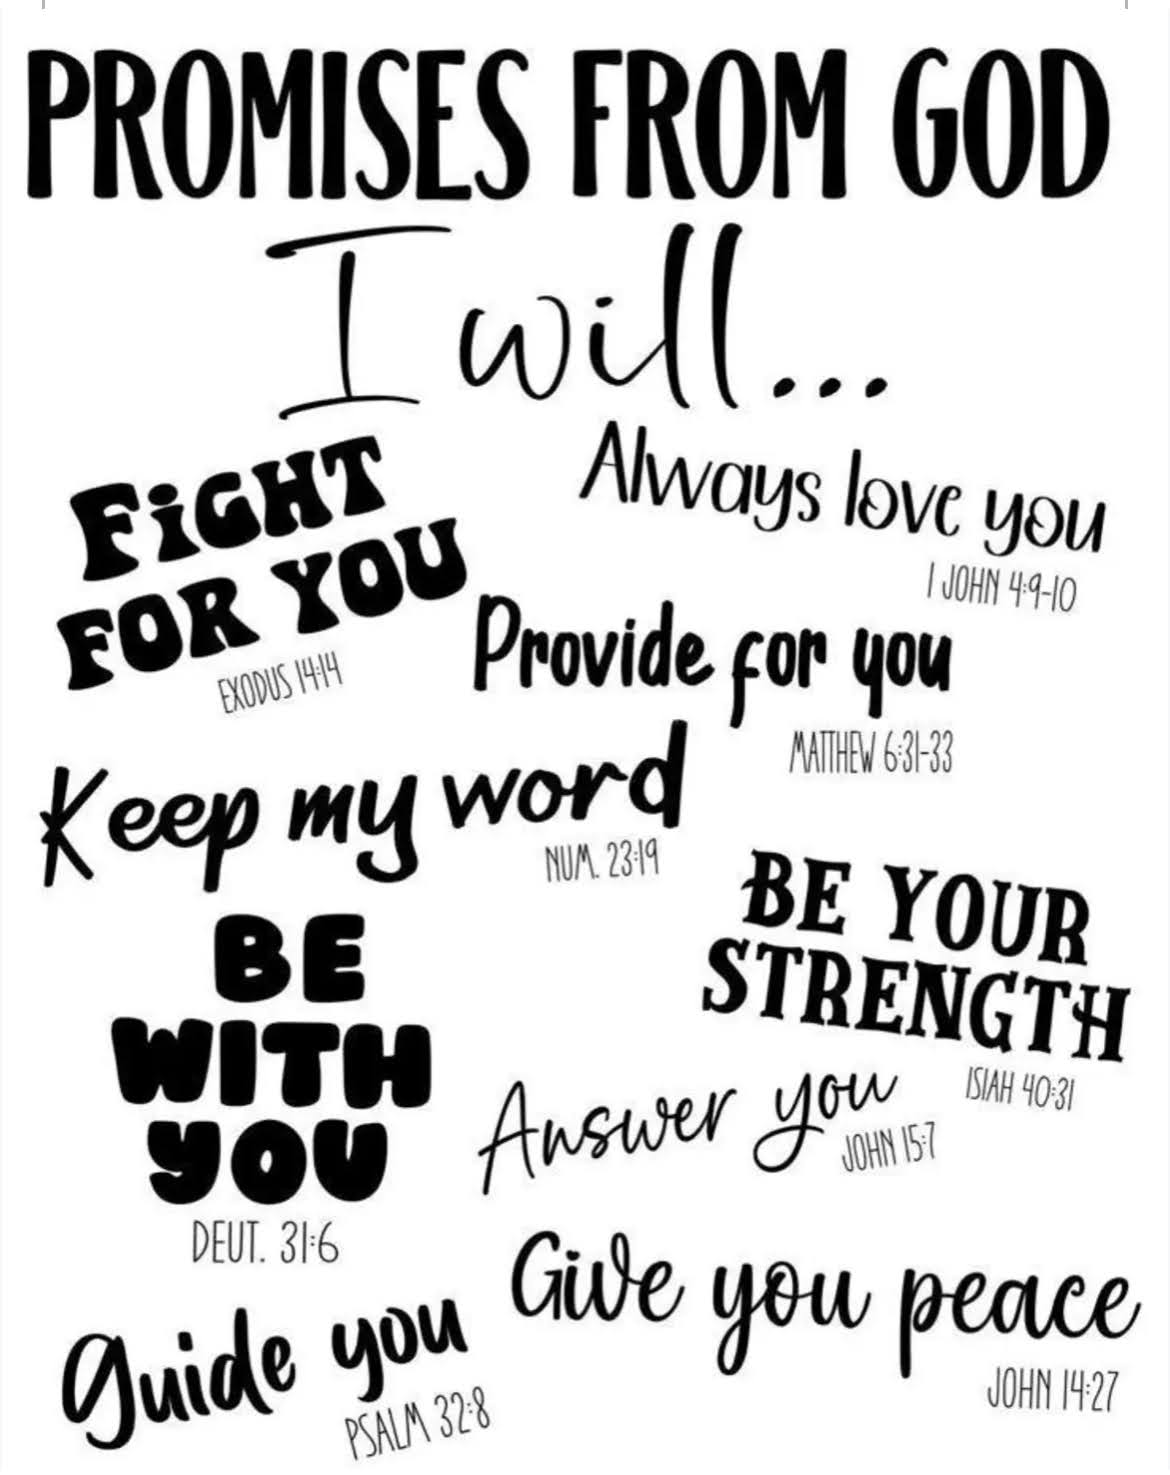 PROMISES FROM GOD
I will...
FiGHT
FOR YOU
EXODUS 14:14
Always love you
1 JOHN 4:9-10
Provide for you
MATTHEW 6:31-33
Keep my word
NUM. 23:19
BE YOUR
STRENGTH
ISIAH 40:31
BE
WITH
YOU
DEUT. 31:6
Answer you
JOHN 15:7
Give you peace
JOHN 14:27
guide you
PSALM 32:8